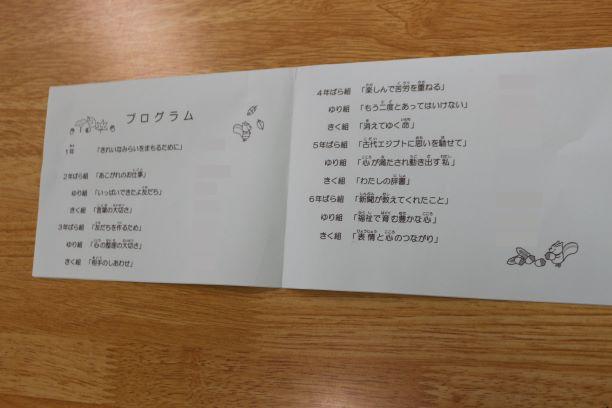 プログラム
1年 「きれいなみらいをまもるために」
2年ばら組 「あこがれのお仕事」
ゆり組 「いっぱいできたよ友だち」
きく組 「言葉の大切さ」
3年ばら組 「友だちを作るため」
ゆり組 「心の整理の大切さ」
きく組 「相手のしあわせ」
4年ばら組 「楽しんで苦労を重ねる」
ゆり組 「もう二度とあってはいけない」
きく組 「消えてゆく命」
5年ばら組 「古代エジプトに思いを馳せて」
ゆり組 「心が満たされ動き出す私」
きく組 「わたしの辞書」
6年ばら組 「新聞が教えてくれたこと」
ゆり組 「福祉で育む豊かな心」
きく組 「表情と心のつながり」